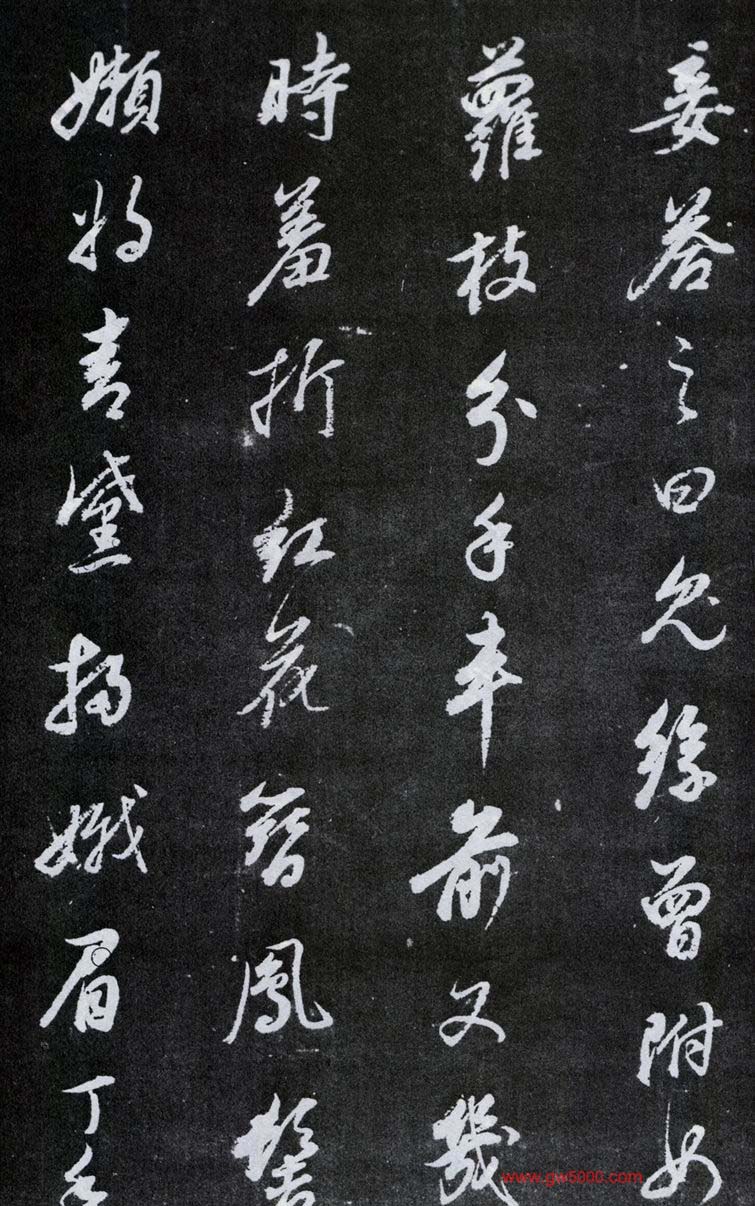 妾荅之曰兔絲曾附女
蘿枝分手車前又幾
時羞折紅花簪鳳髻
嬾將青黛掃娥眉丁香
www.gw5000.com